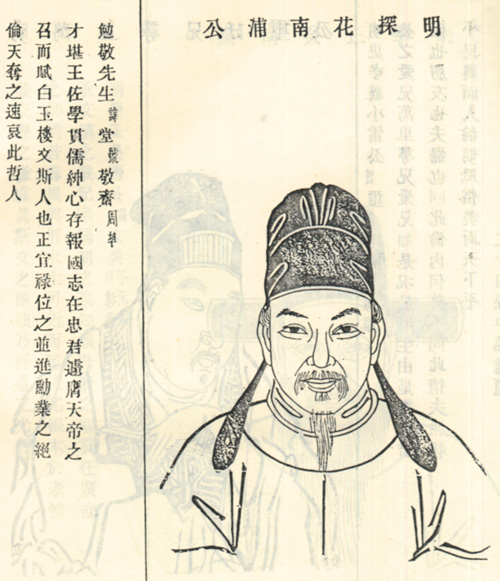 明探花南浦公
勉敬先生諱堂號敬齋周
才堪王佐學貫儒紳心存報國志在忠君遽膺天帝之
召而賦白玉樓文斯人也正宜祿位之並進勳業之絕
倫天奪之速哀此哲人